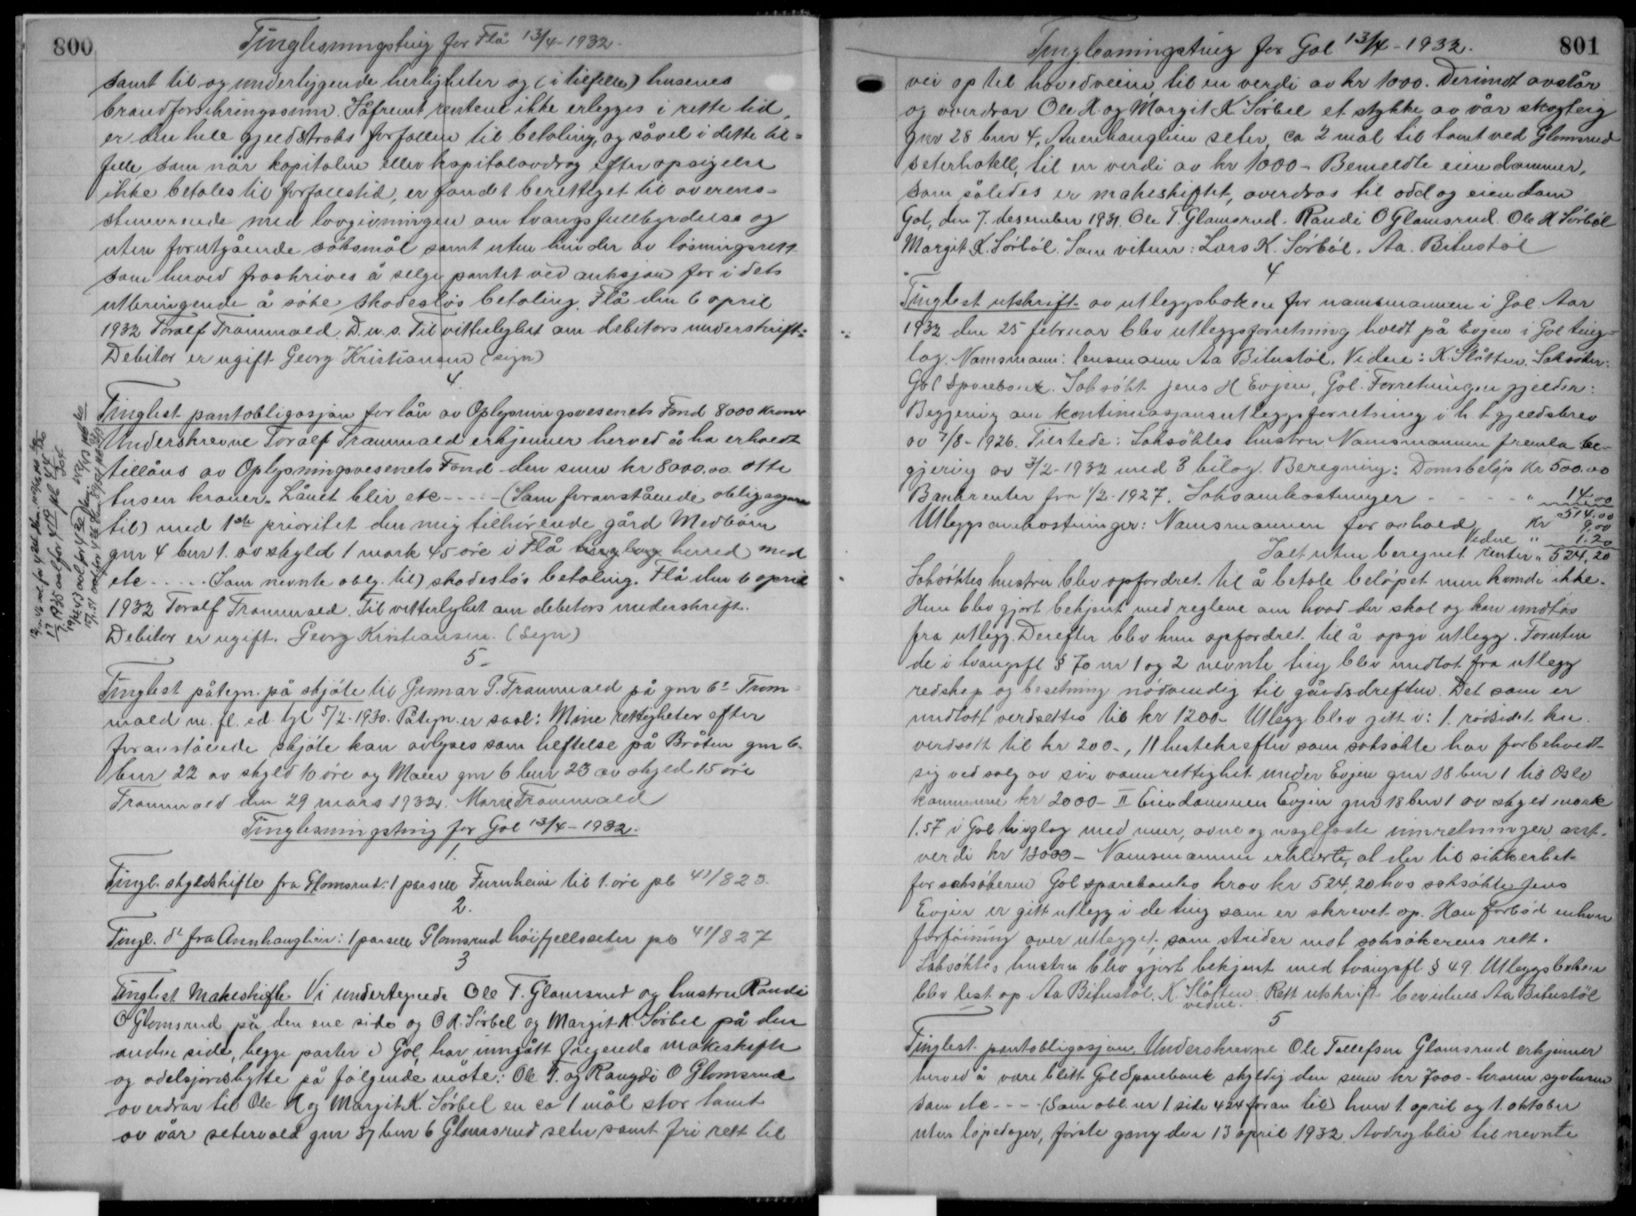 800
Tinglesningsting for Flå 13/4-1932.
samt til og underliggende herligheter og (i tilfelle) husenes
brandforsikringssum. Såfremt rentene ikke erlegges i rette tid,
er den hele gjeld straks forfallen til betaling, og såvel i dette til-
felle som når kapitalen eller kapitalavdrag efter opsigelse
ikke betales til forfallstid, er fondet berettiget til overens-
stemmende med lovgivningen om tvangsfullbyrdelse og
uten forutgående søksmål samt uten hinder av løsningsrett
som herved fraskrives å selge pantet ved auksjon for i dets
utbringende å søke skadesløs betaling. Flå den 6 april
1932 Toralf Trommald. D.u.s. Til vitterlighet om debitors underskrift:
Debitor er ugift Georg Kristiansen (sign)
4.
Tinglest pantobligasjon for lån av Oplysningsvesenets Fond 8000 kroner
Underskrevne Toralf Trommald erkjenner herved å ha erholdt
tillåns av Oplysningsvesenets Fond den sum kr 8000.00 otte
tusen kroner. Lånet blir etc - - - - (Som foranstående obligasjon
til) med 1ste prioritet den mig tilhørende gård Medbøen
gnr 4 bnr 1. av skyld 1 mark 45 øre i Flå herred med
etc - - - - Som nevnte oblg. til) skadesløs betaling. Flå den 6 april
1932 Toralf Trommald. Til vitterlighet om debitors underskrift.
Debitor er ugift. Georg Kristiansen. (Sign)
5-
Tinglest påtegn. på skjøte til Gunnar P. Trommald på gnr 6² Trom-
mald m. fl. ed tgl 5/2-1930. Påtegn. er saal: Mine rettigheter efter
foranstående skjøte kan avlyses som heftelse på Bråten gnr 6.
bnr 22 av skyld 10 øre og Moen gnr 6 bnr 23 av skyld 15 øre
Trommald den 29 mars 1932. Marie Trommald
Tinglesningsting for Gol 13/4-1932.
1.
Tingl. skyldskifte fra Glomsrud: 1 parsell Furuheim til 1 øre pb 41/823.
2.
Tingl. dº fra Annhauglien: 1 parsell Glomsrud høifjellsseter pb 41/827
3
Tinglest Makeskifte Vi undertegnede Ole T. Glomsrud og hustru Randi
O Glomsrud på den ene side og O K. Sørbel og Margit K Sørbel på den
anden side, begge parter i Gol, har inngått følgende makeskifte
og odelsjordsbytte på følgende måte: Ole T. og Rangdi O Glomsrud
overdrar til Ole K og Margit K. Sørbel en ca 1 mål stor tomt
av vår setervold gnr 37 bnr 6 Glomsrud seter samt fri rett til
801
Tinglesningsting for Gol 13/4-1932.
vei op til hovedveien, til en verdi av kr 1000. Derimot avstår
og overdrar Ole K og Margit K Sørbel et stykke av vår skogteig
gnr 28 bnr 4. Annhauglien seter, ca 2 mål til tomt ved Glomsrud
seterhotell, til en verdi av kr 1000- Bemeldte eiendommer,
som således er makeskiftet, overdras til odel og eiendom
Gol, den 7. desember 1931. Ole T Glomsrud. Randi O Glomsrud. Ole K Sørbøl
Margit K. Sørbøl. Som vitner: Lars K. Sørbøl. Aa. Bitustøl
4
Tinglest utskrift av utleggsboken for namsmannen i Gol Aar
1932 den 25 februar blev utleggsforretning holdt på Evjen i Gol ting-
lag. Namsmann: lensmann Aa Bitustøl. Vidne: K. Slåtten. Saksøker:
Gol Sparebank. Saksøkt Jens H Evjen, Gol. Forretningen gjelder:
Begjering om kontinuasjonsutleggsforretning i h. t gjeldsbrev
av 7/8-1926. Tilstede: Saksøktes hustru Namsmannen fremla be-
gjering av 3/2-1932 med 3 bilag. Beregning: Domsbeløp kr 500.00
Bankrenter fra 1/2-1927. Saksomkostninger - - - " 14.00
kr 514.00
Utleggsomkostninger: Namsmannen for avhold 9.00
Vidne " 1.20
Ialt uten beregnet renter " 524,20
Saksøktes hustru blev opfordret til å betale beløpet men kunde ikke.
Hun blev gjort bekjent med reglene om hvad der skal og kan undtas
fra utlegg. Derefter blev hun opfordret til å opgi utlegg. Foruten
de i tvangsfl § 70 nr 1 og 2 nevnte ting blev undtat fra utlegg
redskap og besetning nødvendig til gårdsdriften. Det som er
undtatt verdsettes til kr 1200- Utlegg blev gitt i: 1. rødsidet ku
verdsatt til kr 200-, 11 hestekrefter som saksøkte har forbeholdt
sig ved salg av sin vannrettighet under Evjen gnr 18 bnr 1 til Oslo
kommune kr 2000- II Eiendommen Evjen gnr 18 bnr 1 av skyld mark
1.57 i Gol tinglag med mur, ovne og naglfaste innretninger ant.
verdi kr 13000- Namsmannen erklærte, at der til sikkerhet
for saksøkeren Gol sparebanks krav kr 524,20 hos saksøkte Jens
Evjen er gitt utlegg i de ting som er skrevet op. Han forbød enhver
forføining over utlegget, som strider mot saksøkerens rett.
Saksøktes hustru blev gjort bekjent med tvangsfl. § 49. Utleggsboken
blev lest op. Aa Bitustøl. K. Slåtten vidne. Rett utskrift bevidnes Aa Bitustøl
5
Tinglest pantobligasjon. Underskrevne Ole Tollefsen Glomsrud erkjenner
herved å være blitt Gol Sparebank skyldig den sum kr 7000- kroner syvtusen
som etc - - - (Som obl. nr 1 side 424 foran til) hver 1. april og 1. oktober
uten løpedager, første gang den 13 april 1932. Avdrag blir til nevnte